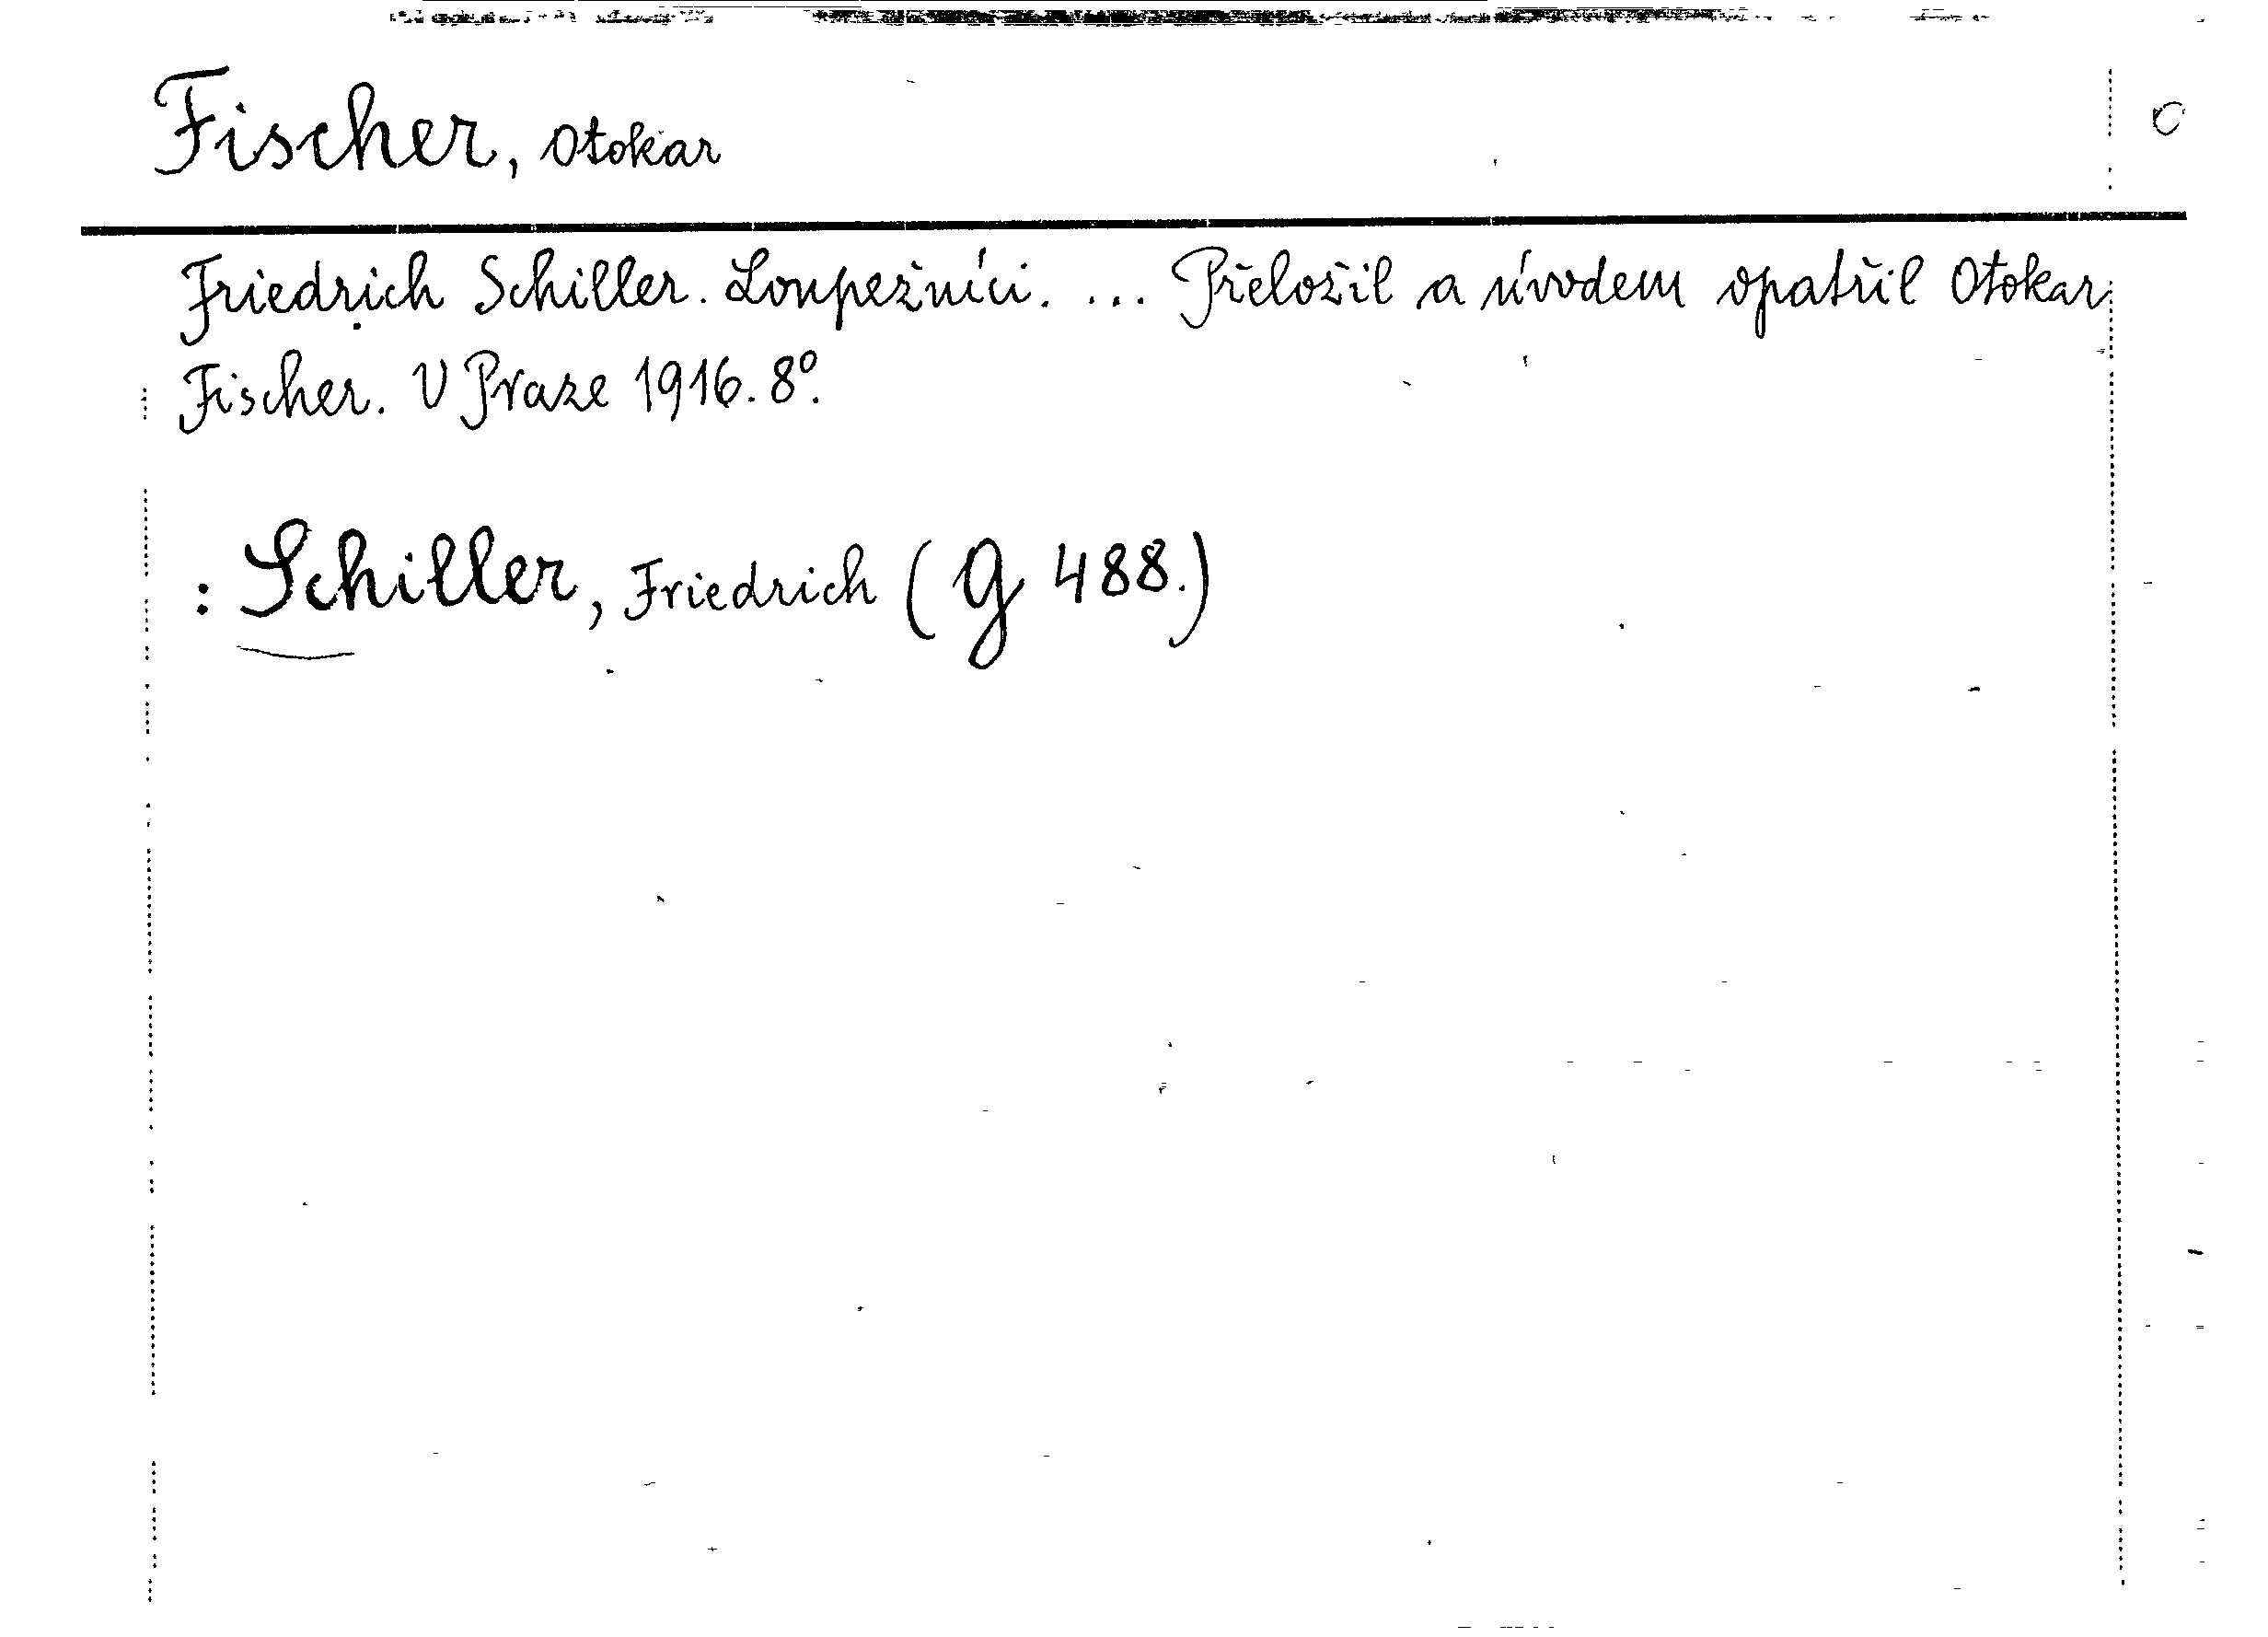 Fischer, Otokar
C
Friedrich Schiller. Loupežníci. ... Přeložil a úvodem opatřil Otokar
Fischer. V Praze 1916. 8°.
: Schiller, Friedrich (g 488.)